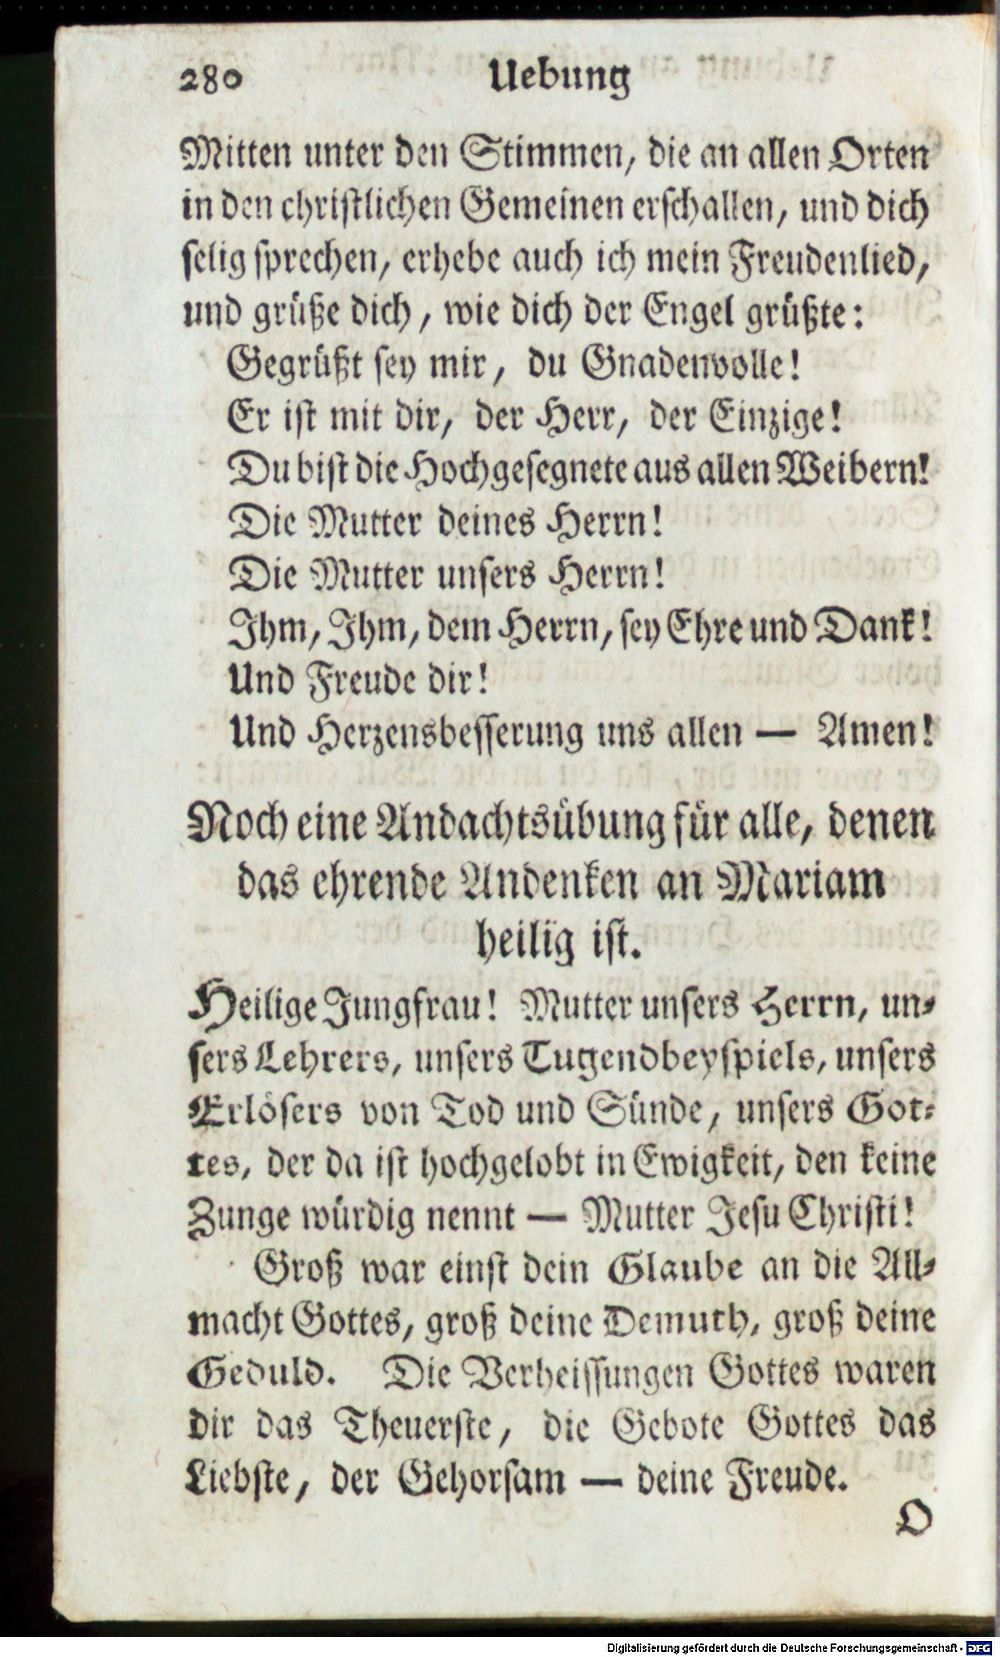 280 Uebung
Mitten unter den Stimmen, die an allen Orten
in den christlichen Gemeinen erschallen, und dich
selig sprechen, erhebe auch ich mein Freudenlied,
und grüße dich, wie dich der Engel grüßte:
Gegrüßt sey mir, du Gnadenvolle!
Er ist mit dir, der Herr, der Einzige!
Du bist die Hochgesegnete aus allen Weibern!
Die Mutter deines Herrn!
Die Mutter unsers Herrn!
Ihm, Ihm, dem Herrn, sey Ehre und Dank!
Und Freude dir!
Und Herzensbesserung uns allen — Amen!
Noch eine Andachtsübung für alle, denen
das ehrende Andenken an Mariam
heilig ist.
Heilige Jungfrau! Mutter unsers Herrn, un-
sers Lehrers, unsers Tugendbeyspiels, unsers
Erlösers von Tod und Sünde, unsers Got-
tes, der da ist hochgelobt in Ewigkeit, den keine
Zunge würdig nennt — Mutter Jesu Christi!
Groß war einst dein Glaube an die All-
macht Gottes, groß deine Demuth, groß deine
Geduld. Die Verheissungen Gottes waren
dir das Theuerste, die Gebote Gottes das
Liebste, der Gehorsam — deine Freude.
O
Digitalisierung gefördert durch die Deutsche Forschungsgemeinschaft - DFG